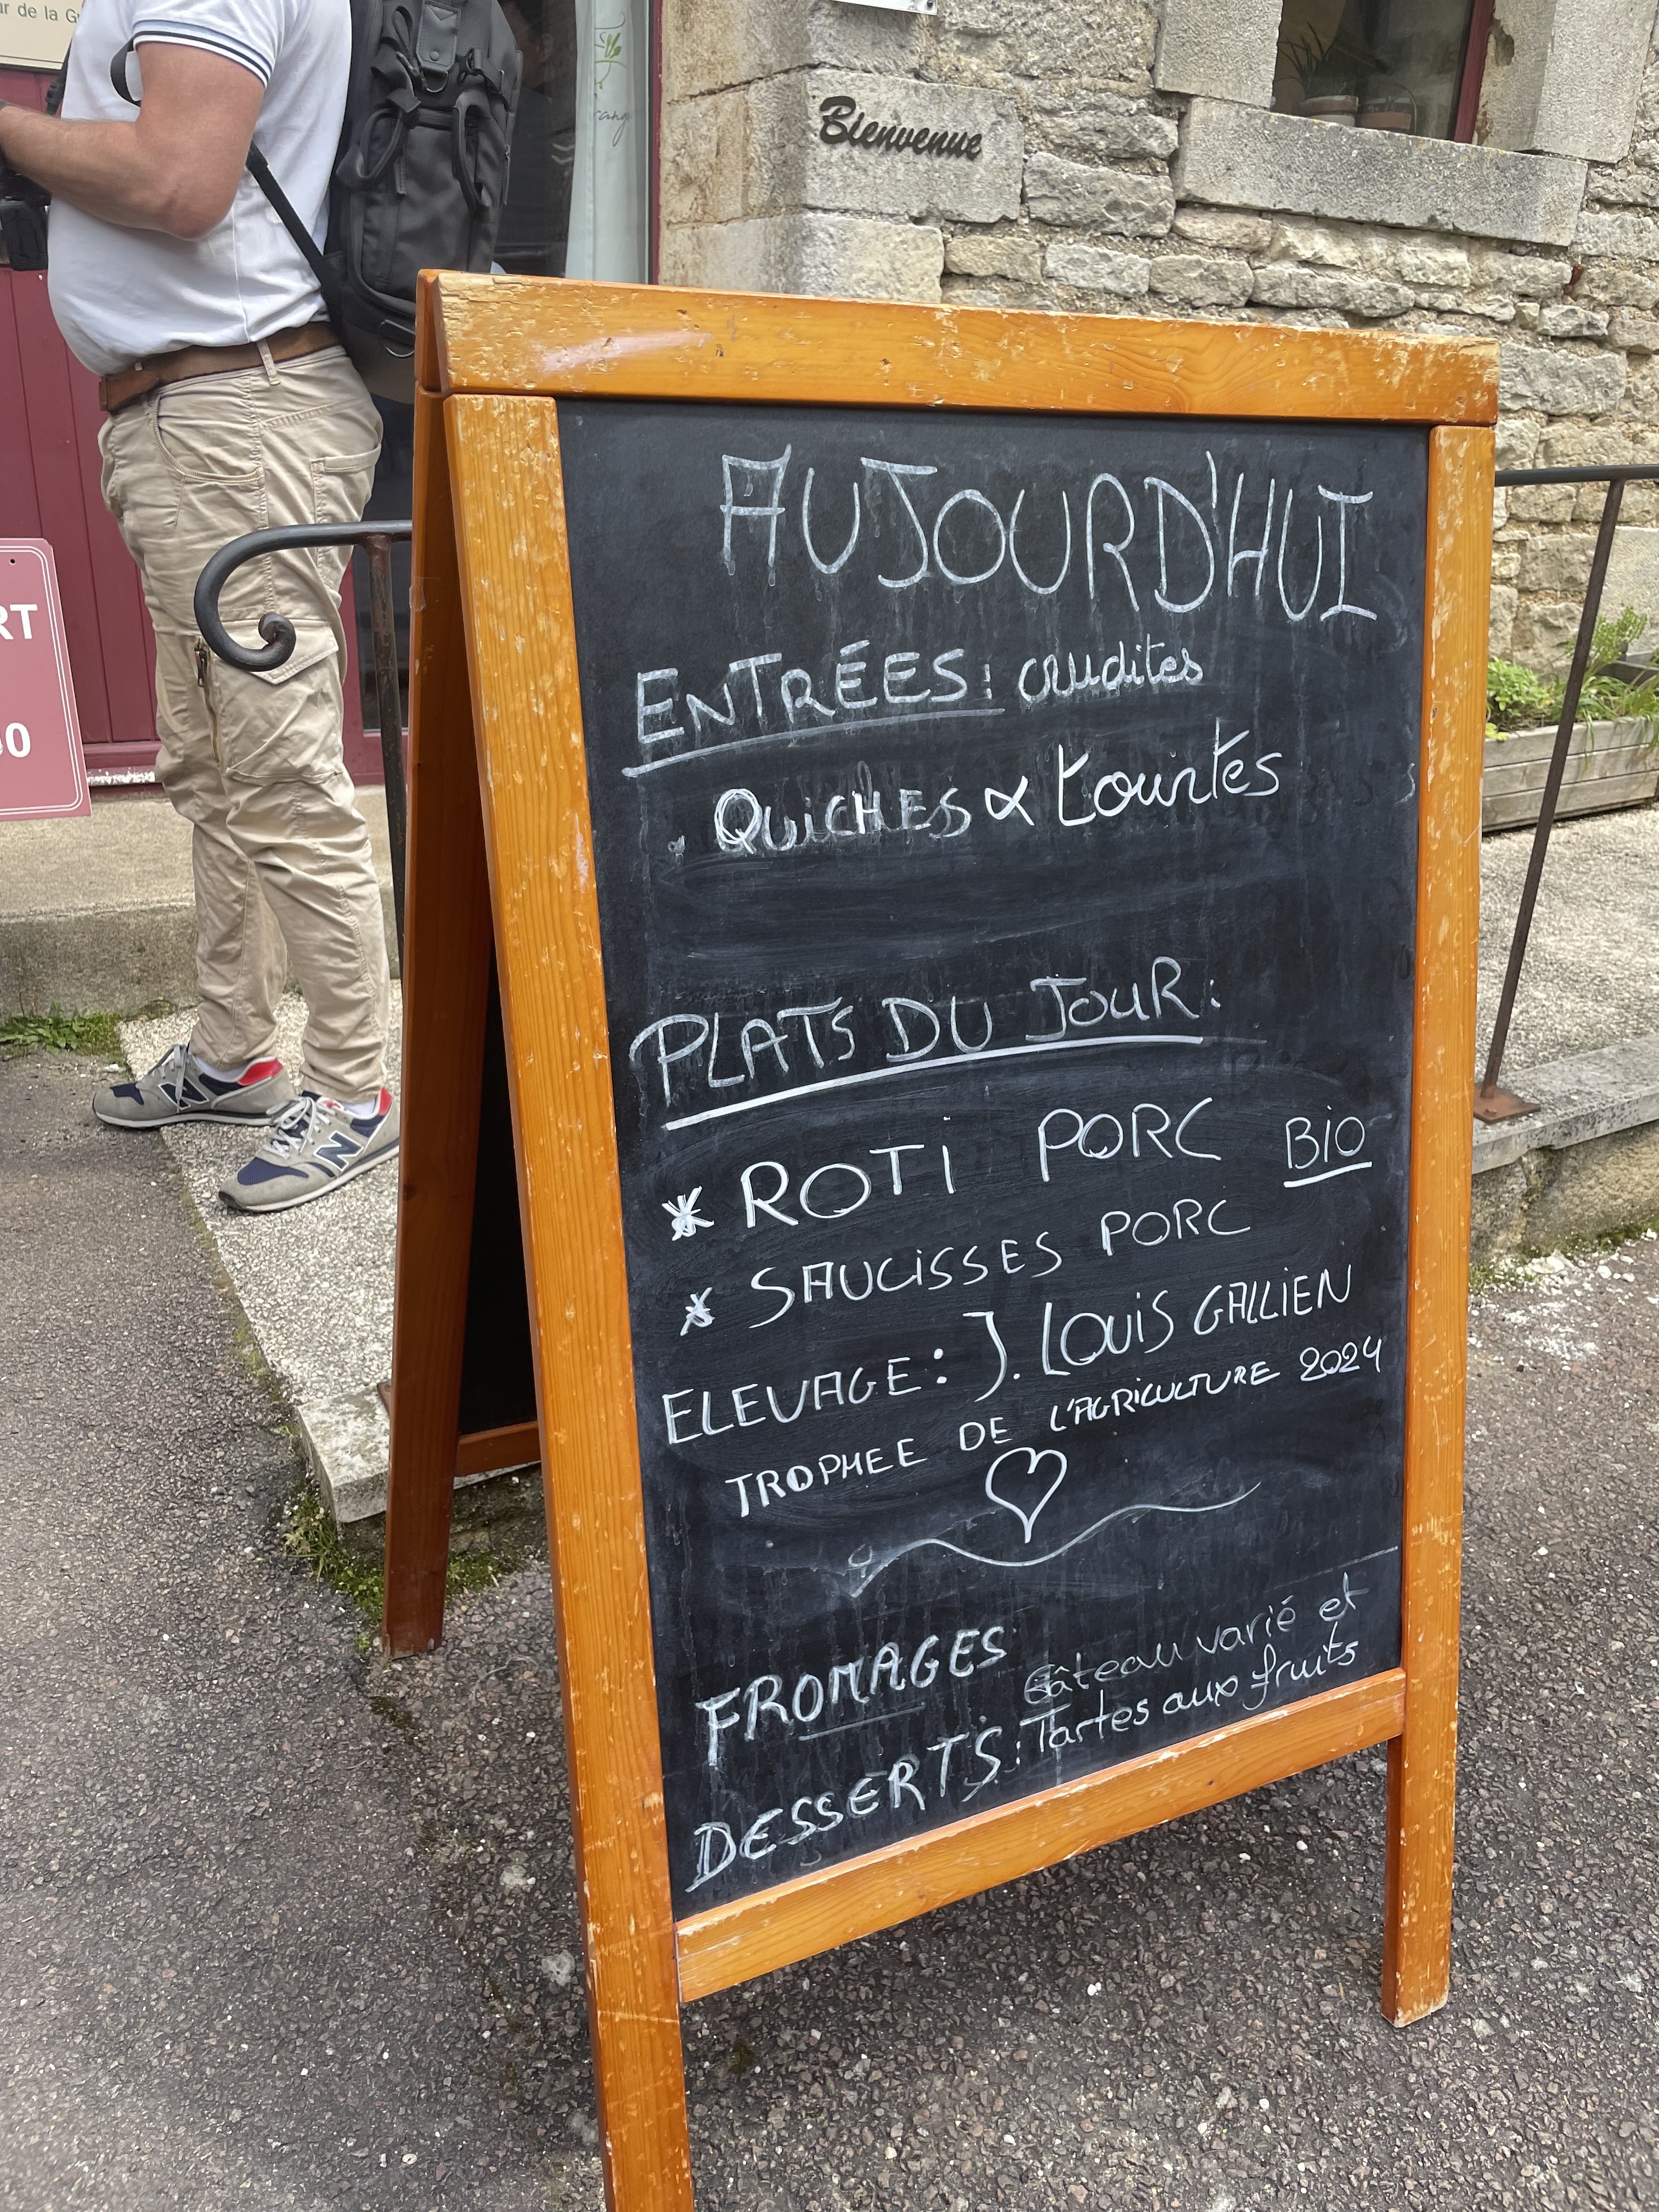 ur de la G
Bienvenue
RT
AUJOURD'HUI
ENTRÉES: crudites
. QUICHES & tourtes
PLATS DU JOUR:
* ROTI PORC BIO
* SAUCISSES PORC
ELEVAGE: J. LOUIS GALLIEN
TROPHEE DE L'AGRICULTURE 2024
FROMAGES
Gâteau varié et
DESSERTS: Tartes aux fruits
N
N